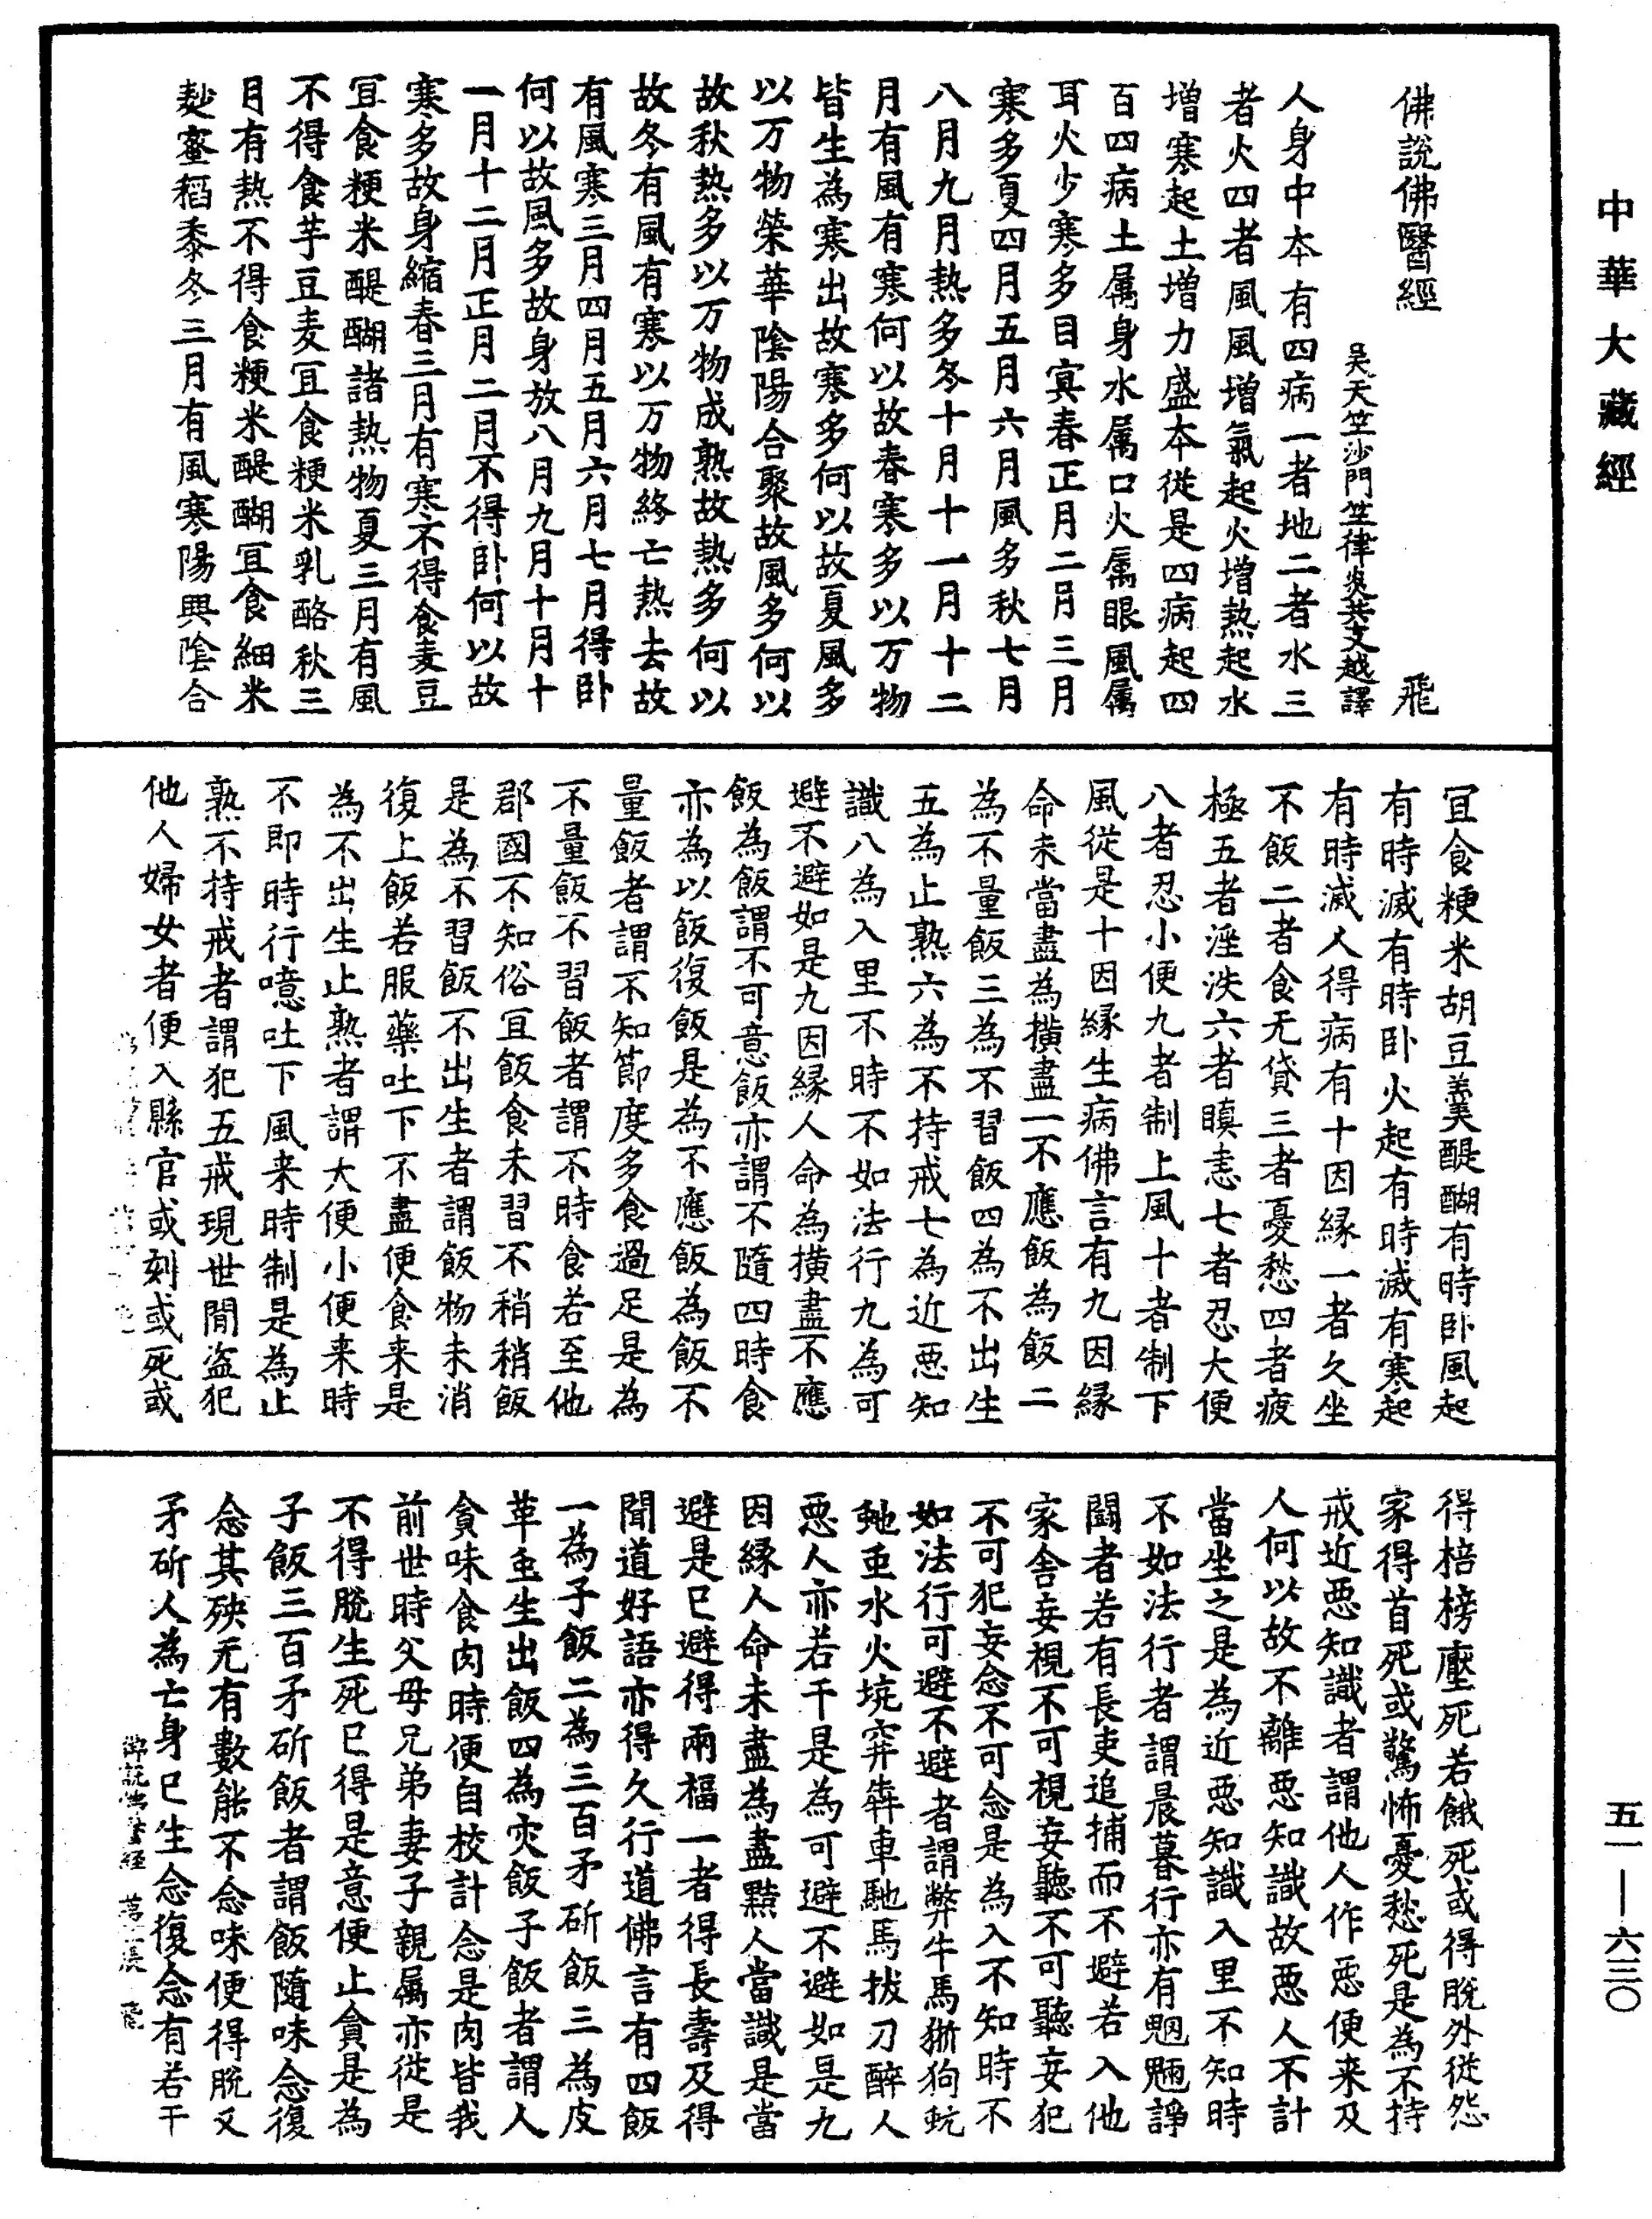 中華大藏經
五一—六三〇
佛說佛醫經 飛
吳天竺沙門竺律炎共支越譯
人身中夲有四病一者地二者水三
者火四者風風增氣起火增熱起水
增寒起土增力盛夲從是四病起四
百四病土属身水属口火属眼風属
耳火少寒多目㝠春正月二月三月
寒多夏四月五月六月風多秋七月
八月九月熱多冬十月十一月十二
月有風有寒何以故春寒多以万物
皆生為寒出故寒多何以故夏風多
以万物榮華陰陽合聚故風多何以
故秋熱多以万物成熟故熱多何以
故冬有風有寒以万物終亡熱去故
有風寒三月四月五月六月七月得卧
何以故風多故身放八月九月十月十
一月十二月正月二月不得卧何以故
寒多故身縮春三月有寒不得食麦豆
冝食粳米醍醐諸熱物夏三月有風
不得食芋豆麦冝食粳米乳酪秋三
月有熱不得食粳米醍醐冝食細米
麨蜜稻黍冬三月有風寒陽興陰合
冝食粳米胡豆羹醍醐有時卧風起
有時滅有時卧火起有時滅有寒起
有時滅人得病有十因縁一者久坐
不飯二者食无貸三者憂愁四者疲
極五者淫泆六者瞋恚七者忍大便
八者忍小便九者制上風十者制下
風從是十因縁生病佛言有九因縁
命未當盡為撗盡一不應飯為飯二
為不量飯三為不習飯四為不出生
五為止熟六為不持戒七為近惡知
識八為入里不時不如法行九為可
避不避如是九因縁人命為撗盡不應
飯為飯謂不可意飯亦謂不隨四時食
亦為以飯復飯是為不應飯為飯不
量飯者謂不知節度多食過足是為
不量飯不習飯者謂不時食若至他
郡國不知俗冝飯食未習不稍稍飯
是為不習飯不出生者謂飯物未消
復上飯若服藥吐下不盡便食来是
為不出生止熟者謂大便小便来時
不即時行噫吐下風来時制是為止
熟不持戒者謂犯五戒現世間盗犯
他人婦女者便入縣官或刻或死或
得棓榜壓死若餓死或得脫外從怨
家得首死或驚怖憂愁死是為不持
戒近惡知識者謂他人作惡便来及
人何以故不離惡知識故惡人不計
當坐之是為近惡知識入里不知時
不如法行者謂晨暮行亦有魍魎諍
闘者若有長吏追捕而不避若入他
家舍妄視不可視妄聽不可聽妄犯
不可犯妄念不可念是為入不知時不
如法行可避不避者謂弊牛馬猘狗蚖
虵䖝水火坑穽犇車馳馬拔刀醉人
惡人亦若干是為可避不避如是九
因縁人命未盡為盡黠人當識是當
避是巳避得兩福一者得長壽及得
聞道好語亦得久行道佛言有四飯
一為子飯二為三百矛斫飯三為皮
革䖝生出飯四為灾飯子飯者謂人
貪味食肉時便自校計念是肉皆我
前世時父母兄弟妻子親属亦從是
不得脫生死巳得是意便止貪是為
子飯三百矛斫飯者謂飯隨味念復
念其殃无有數能不念味便得脫又
矛斫人為亡身巳生念復念有若干